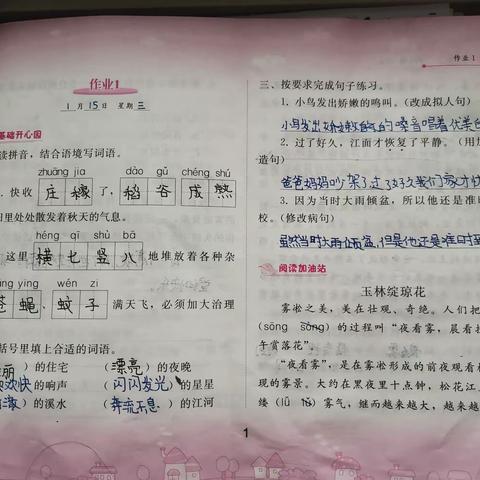 作业1
1月15日 星期三
基础开心园
读拼音,结合语境写词语。
zhuāng jia dào gǔ chéng shú
快收 庄稼 了, 稻谷 成熟
田里处处散发着秋天的气息。
héng qī shù bā
这里 横七竖八 地堆放着各种杂
ying wén zi
苍蝇、蚊子 满天飞,必须加大治理
括号里填上合适的词语。
丽)的住宅 (漂亮)的夜晚
欢快)的响声 (闪闪发光)的星星
澈)的溪水 (奔流不息)的江河
1
作业1
三、按要求完成句子练习。
1. 小鸟发出娇嫩的鸣叫。(改成拟人句)
小鸟发出娇嫩的的嗓音唱着优美的
2. 过了好久,江面才恢复了平静。(用加
造句)
爸爸妈妈吵架了,过了好久我们家才恢
3. 因为当时大雨倾盆,所以他还是准时
校。(修改病句)
虽然当时大雨倾盆,但是他还是准时到
阅读加油站
玉林绽琼花
雾凇之美,美在壮观、奇绝。人们把
(sōng sòng)的过程叫“夜看雾,晨看挂
午赏落花”。
“夜看雾”,是在雾凇形成的前夜观看松
现的雾景。大约在黑夜里十点钟,松花江
缕(lǚ lǔ)雾气,继而越来越大,越来越